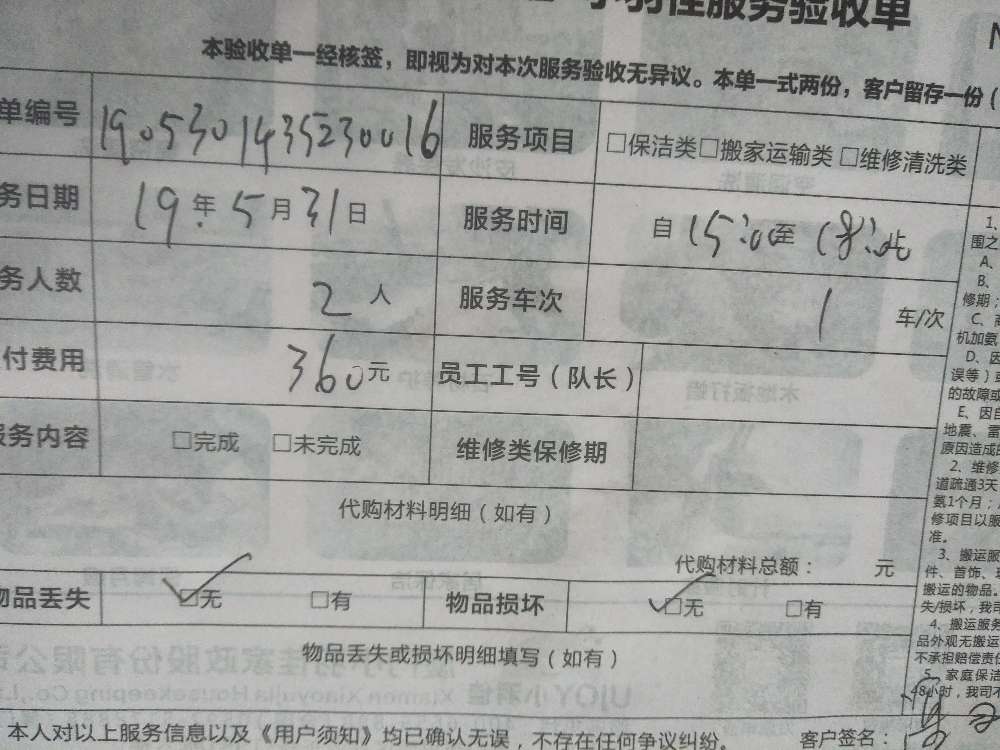 服务验收单
本验收单一经核签，即视为对本次服务验收无异议。本单一式两份，客户留存一份（
单编号 1905301435230016 服务项目 □保洁类□搬家运输类□维修清洗类
务日期 19年5月31日 服务时间 自15:00至18:
务人数 2人 服务车次 1车/次
付费用 360元 员工工号（队长）
服务内容 □完成 □未完成 维修类保修期
代购材料明细（如有）
代购材料总额： 元
物品丢失 □无 □有 物品损坏 □无 □有
物品丢失或损坏明细填写（如有）
本人对以上服务信息以及《用户须知》均已确认无误，不存在任何争议纠纷。 客户签名：
1、
围之
A、
B、
修期；
C、
机加氨
D、因
误等）或
的故障或
E、因自
地震、雷
原因造成的
2、维修
道疏通3天
氨1个月；
修项目以服
准。
3、搬运服
件、首饰、
搬运的物品。
失/损坏，我司
4、搬运服务
品外观无搬运
不承担赔偿责任
5、家庭保洁
48小时，我司不